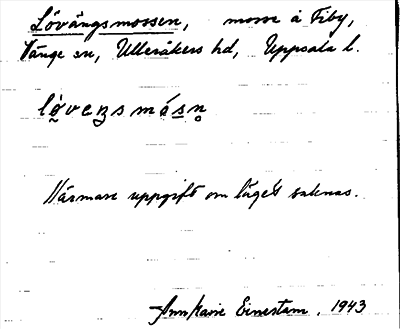 Lövängsmossen, mosse å Fiby,
Vänge sn, Ulleråkers hd, Uppsala l.
lø̀veŋsmósn̥
Närmare uppgift om läget saknas.
Ann Marie Einerstam, 1943